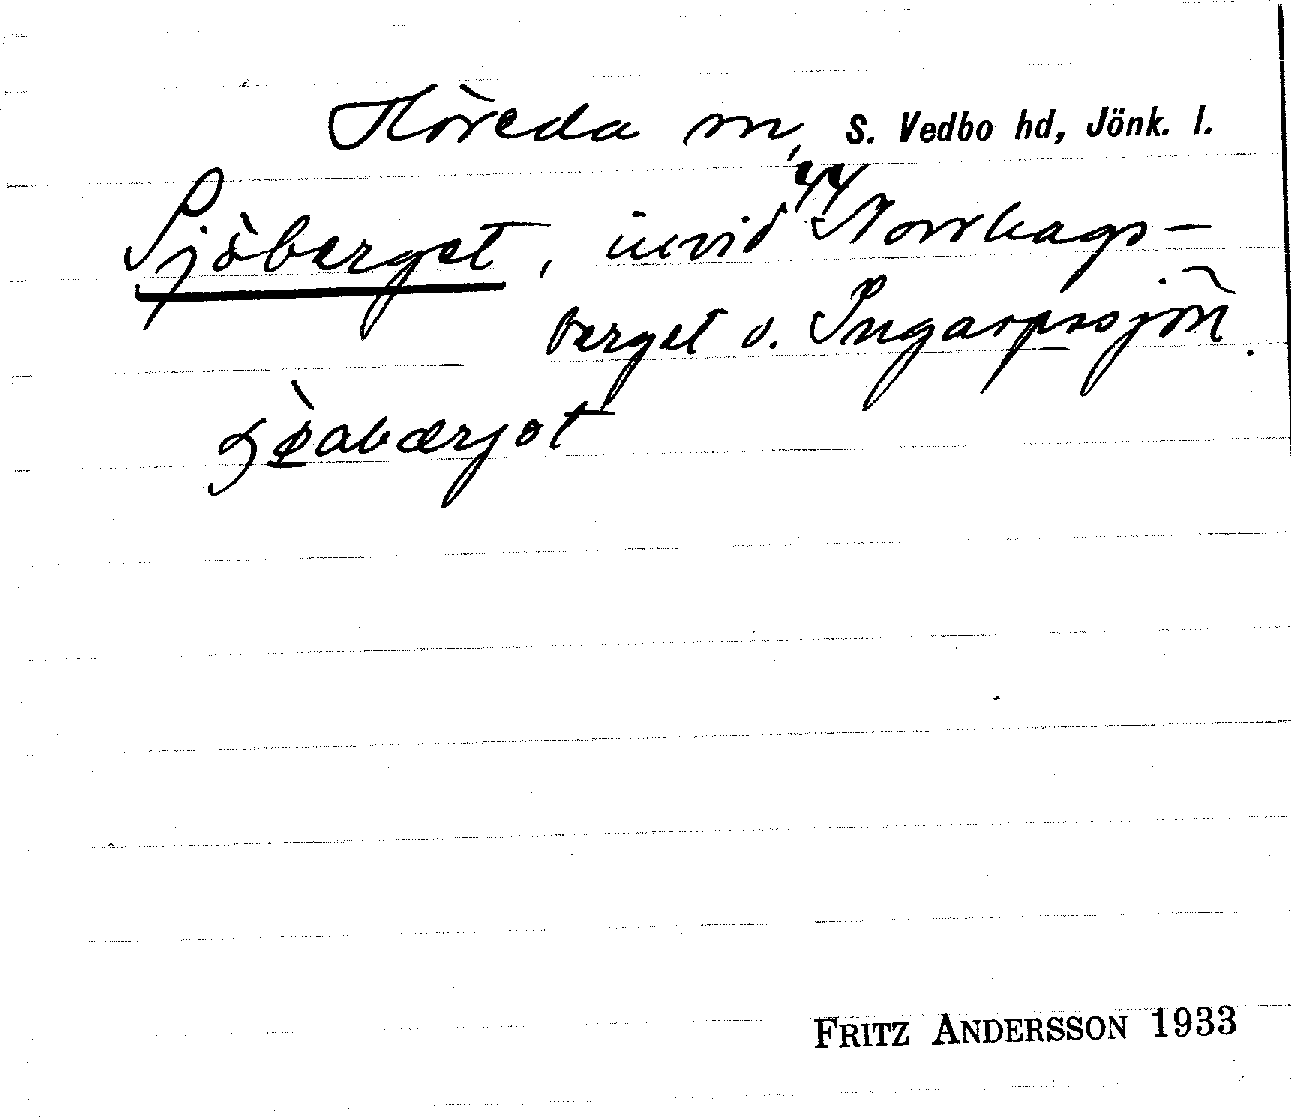 Höreda sn, S. Vedbo hd, Jönk. l.
Sjöberget, invid Norrhags-
berget v. Ingarpssjön.
FRITZ ANDERSSON 1933